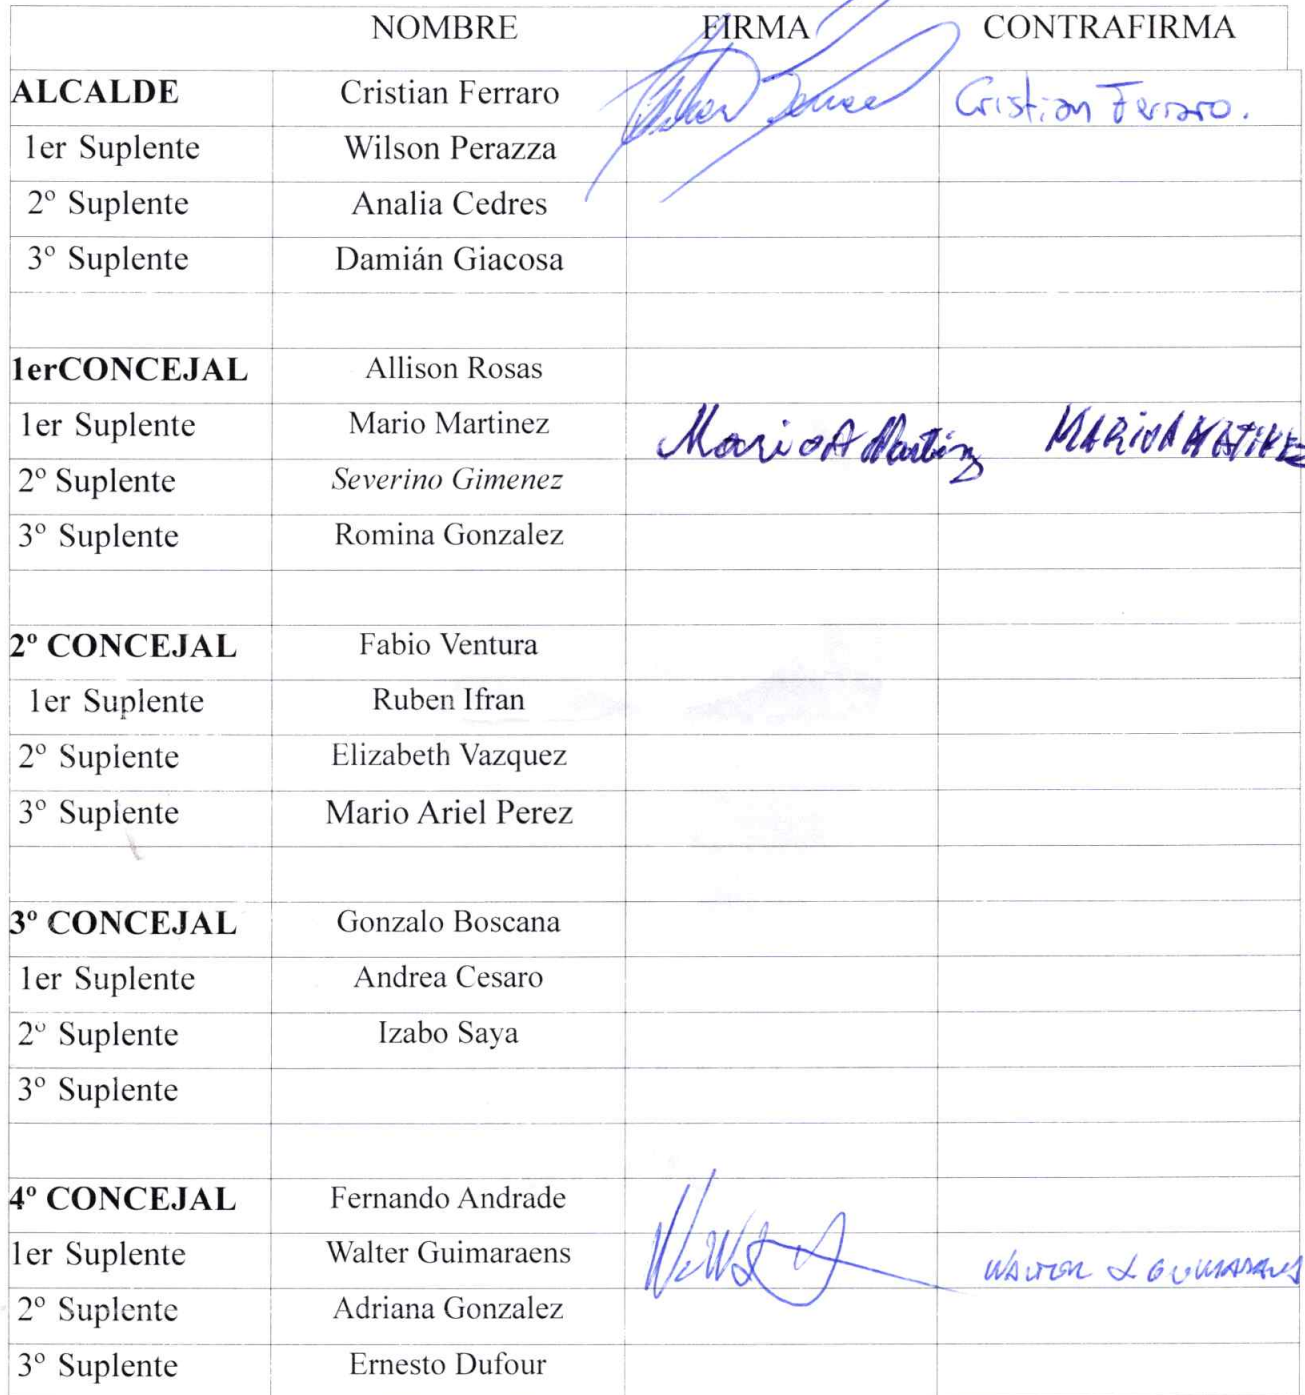 NOMBRE FIRMA CONTRAFIRMA
ALCALDE Cristian Ferraro Cristian Ferraro.
1er Suplente Wilson Perazza
2º Suplente Analia Cedres
3º Suplente Damián Giacosa
1erCONCEJAL Allison Rosas
1er Suplente Mario Martinez Mario A Martinz MARIO A MATINEZ
2º Suplente Severino Gimenez
3º Suplente Romina Gonzalez
2º CONCEJAL Fabio Ventura
1er Suplente Ruben Ifran
2º Suplente Elizabeth Vazquez
3º Suplente Mario Ariel Perez
3º CONCEJAL Gonzalo Boscana
1er Suplente Andrea Cesaro
2º Suplente Izabo Saya
3º Suplente
4º CONCEJAL Fernando Andrade
1er Suplente Walter Guimaraens WALTER
2º Suplente Adriana Gonzalez
3º Suplente Ernesto Dufour